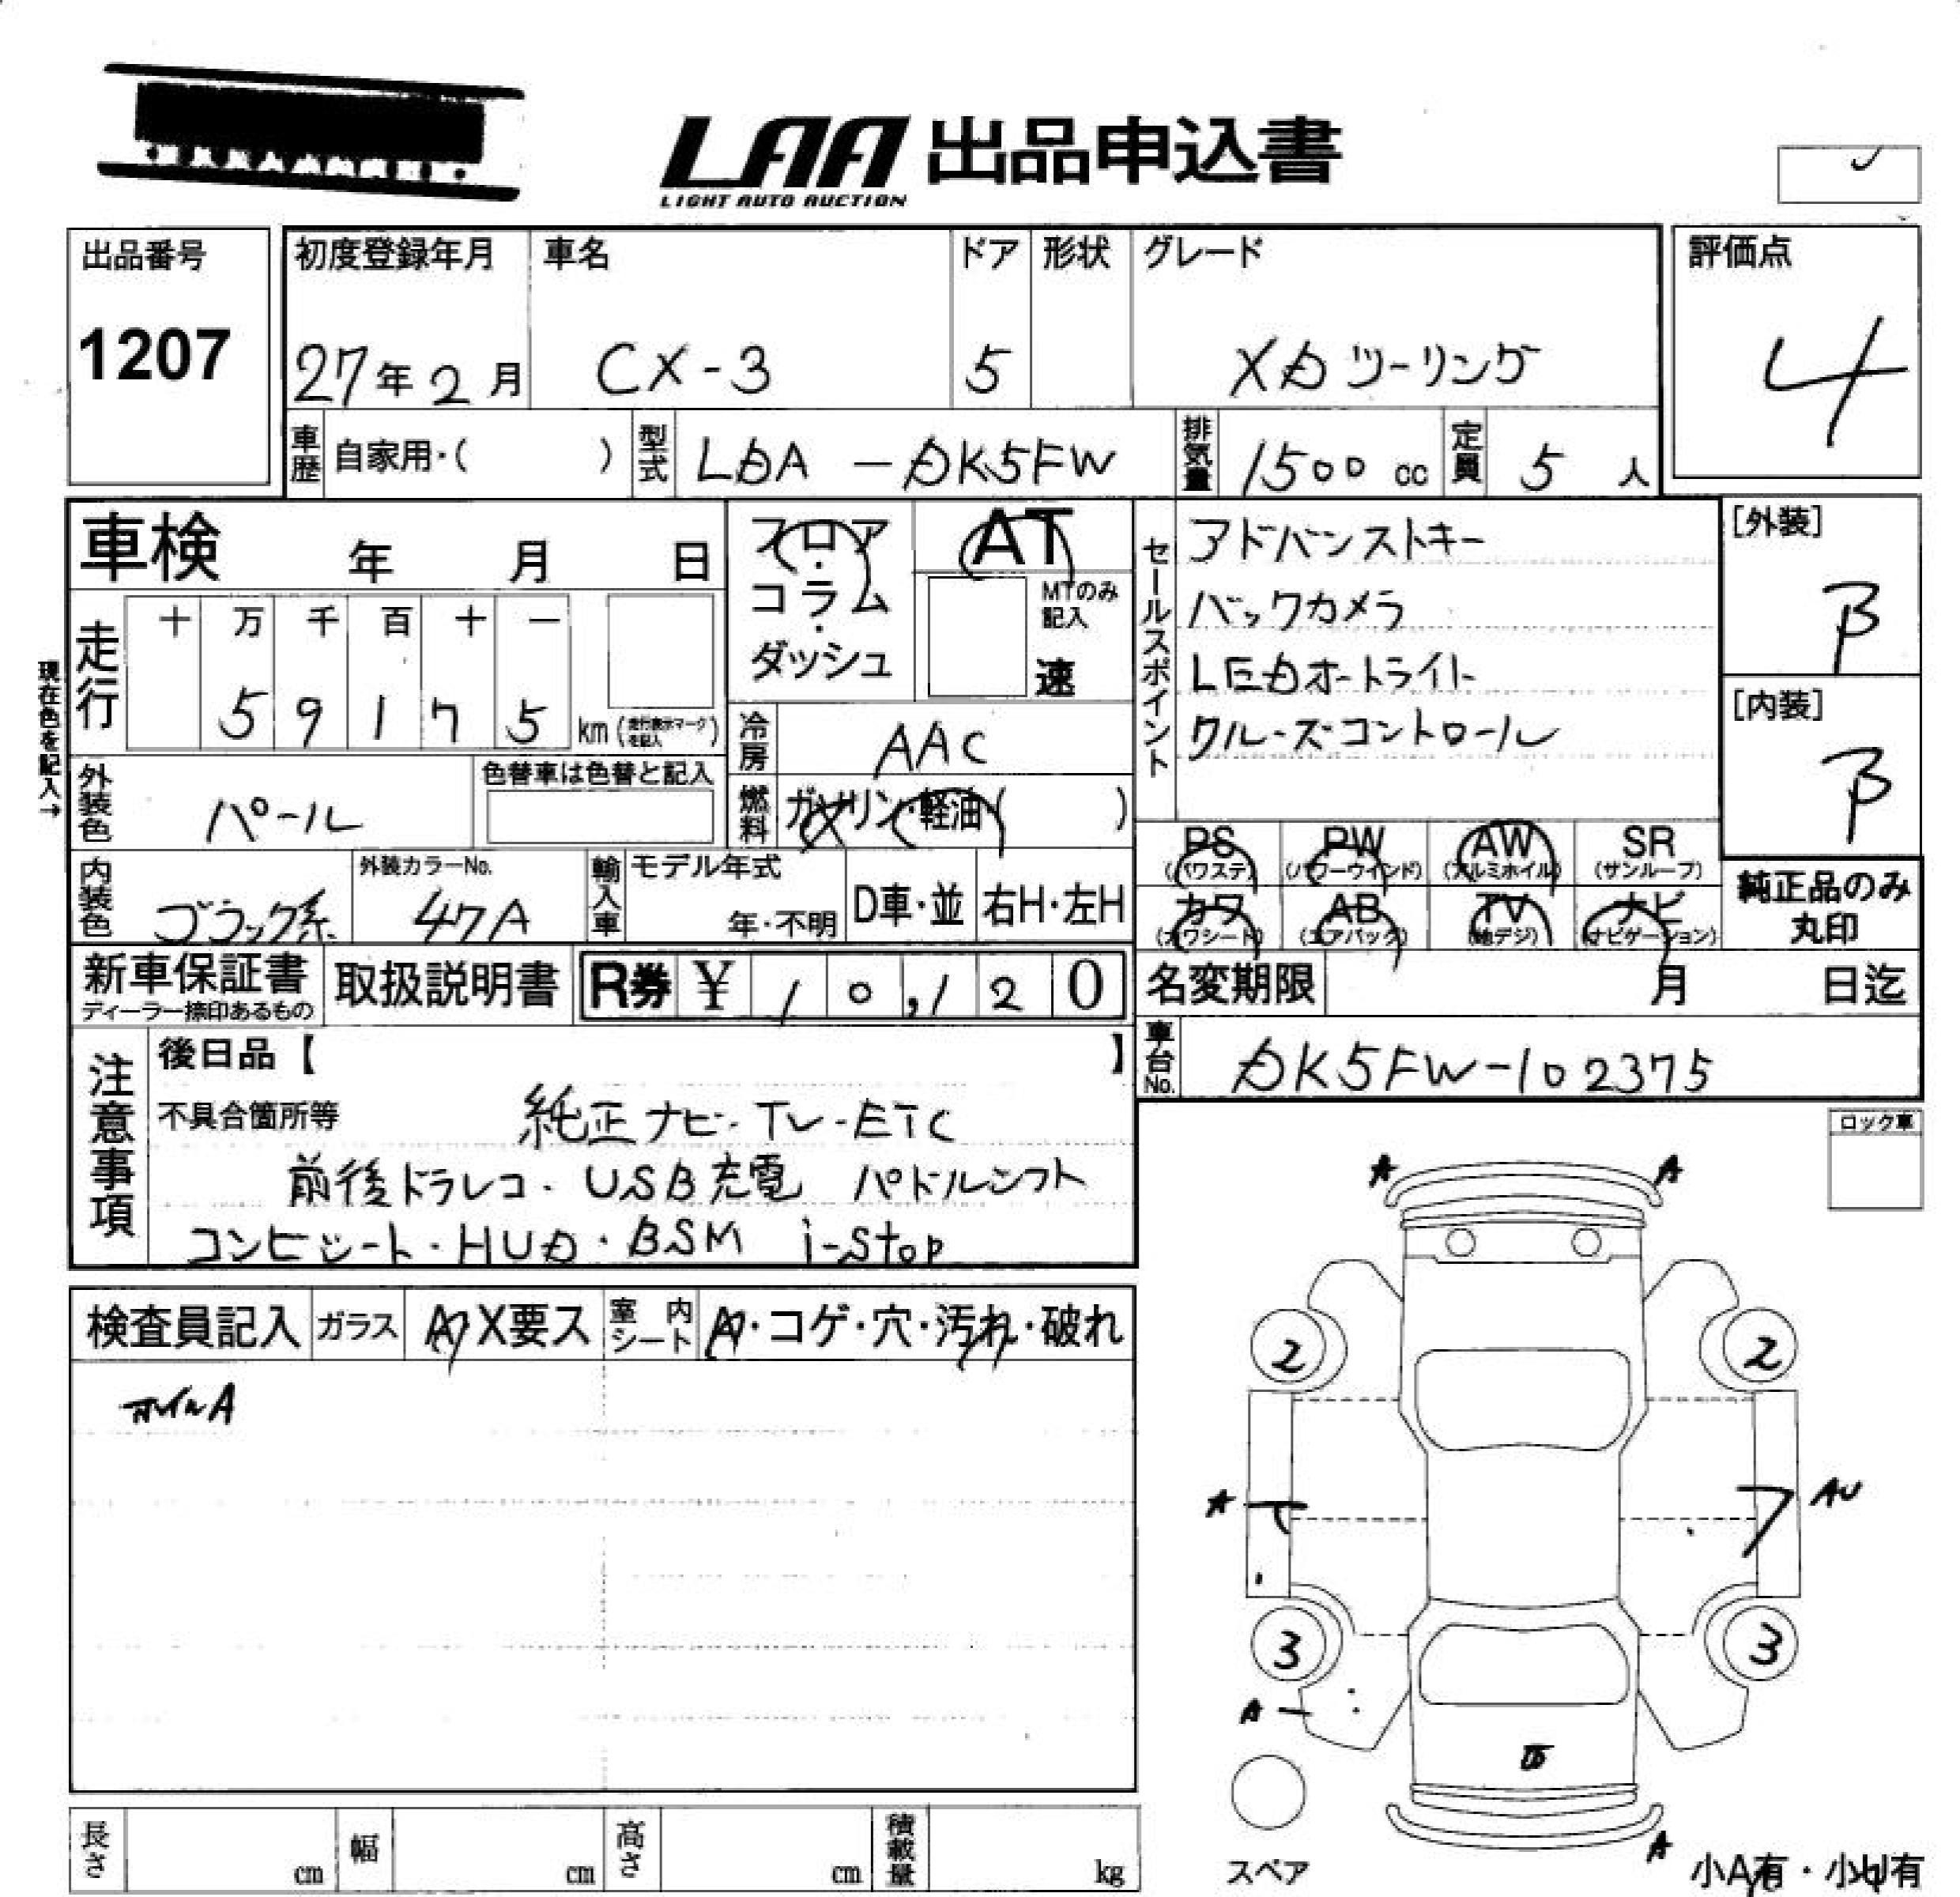 LAA 出品申込書
LIGHT AUTO AUCTION
出品番号
1207
初度登録年月
27年2月
車名
CX-3
ドア
5
形状
グレード
XDツーリング
評価点
4
車歴
自家用・( )
型式
LDA-DK5FW
排気量
1500 cc
定員
5 人
車検 年 月 日
フロア・コラム・ダッシュ
AT
MTのみ記入
速
セールスポイント
アドバンストキー
バックカメラ
LEDオートライト
クルーズコントロール
[外装]
B
[内装]
B
現在色を記入→
走行
十 万 千 百 十 一
5 9 1 7 5 km (走行表示マークを記入)
冷房
AAC
外装色
パール
色替車は色替と記入
燃料
ガソリン・軽油( )
PS (パワステ)
PW (パワーウインド)
AW (アルミホイル)
SR (サンルーフ)
カワ (カワシート)
AB (エアバック)
TV (地デジ)
ナビ (ナビゲーション)
純正品のみ丸印
内装色
ブラック系
外装カラーNo.
47A
輸入車
モデル年式
年・不明
D車・並
右H・左H
新車保証書
ディーラー捺印あるもの
取扱説明書
R券 ¥ 10,120
名変期限 月 日迄
車台No.
DK5FW-102375
注意事項
後日品【 】
不具合箇所等
純正ナビ・TV・ETC
前後ドラレコ・USB充電 パドルシフト
コンビシート・HUD・BSM i-stop
ロック車
検査員記入
ガラス
A X要ス
室内シート
A・コゲ・穴・汚れ・破れ
ホイルA
A
A
2
2
A
AU
3
3
A
A
スペア
小A有・小U有
長さ cm
幅 cm
高さ cm
積載量 kg